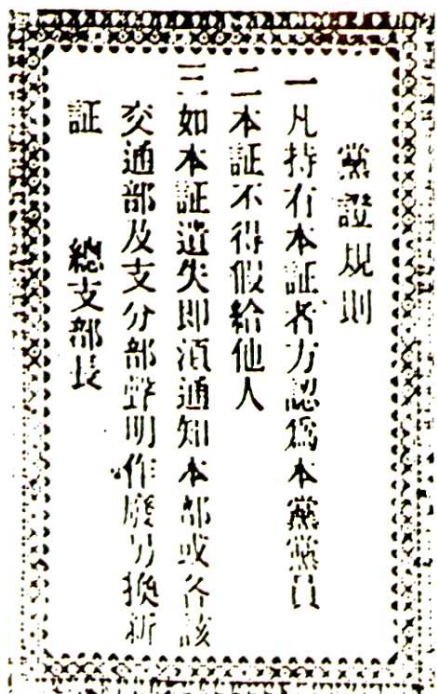 黨證規則
一凡持有本証者方認爲本黨黨員
二本証不得假給他人
三如本証遺失即須通知本部或各該
交通部及支分部聲明作廢另換新
証　　總支部長